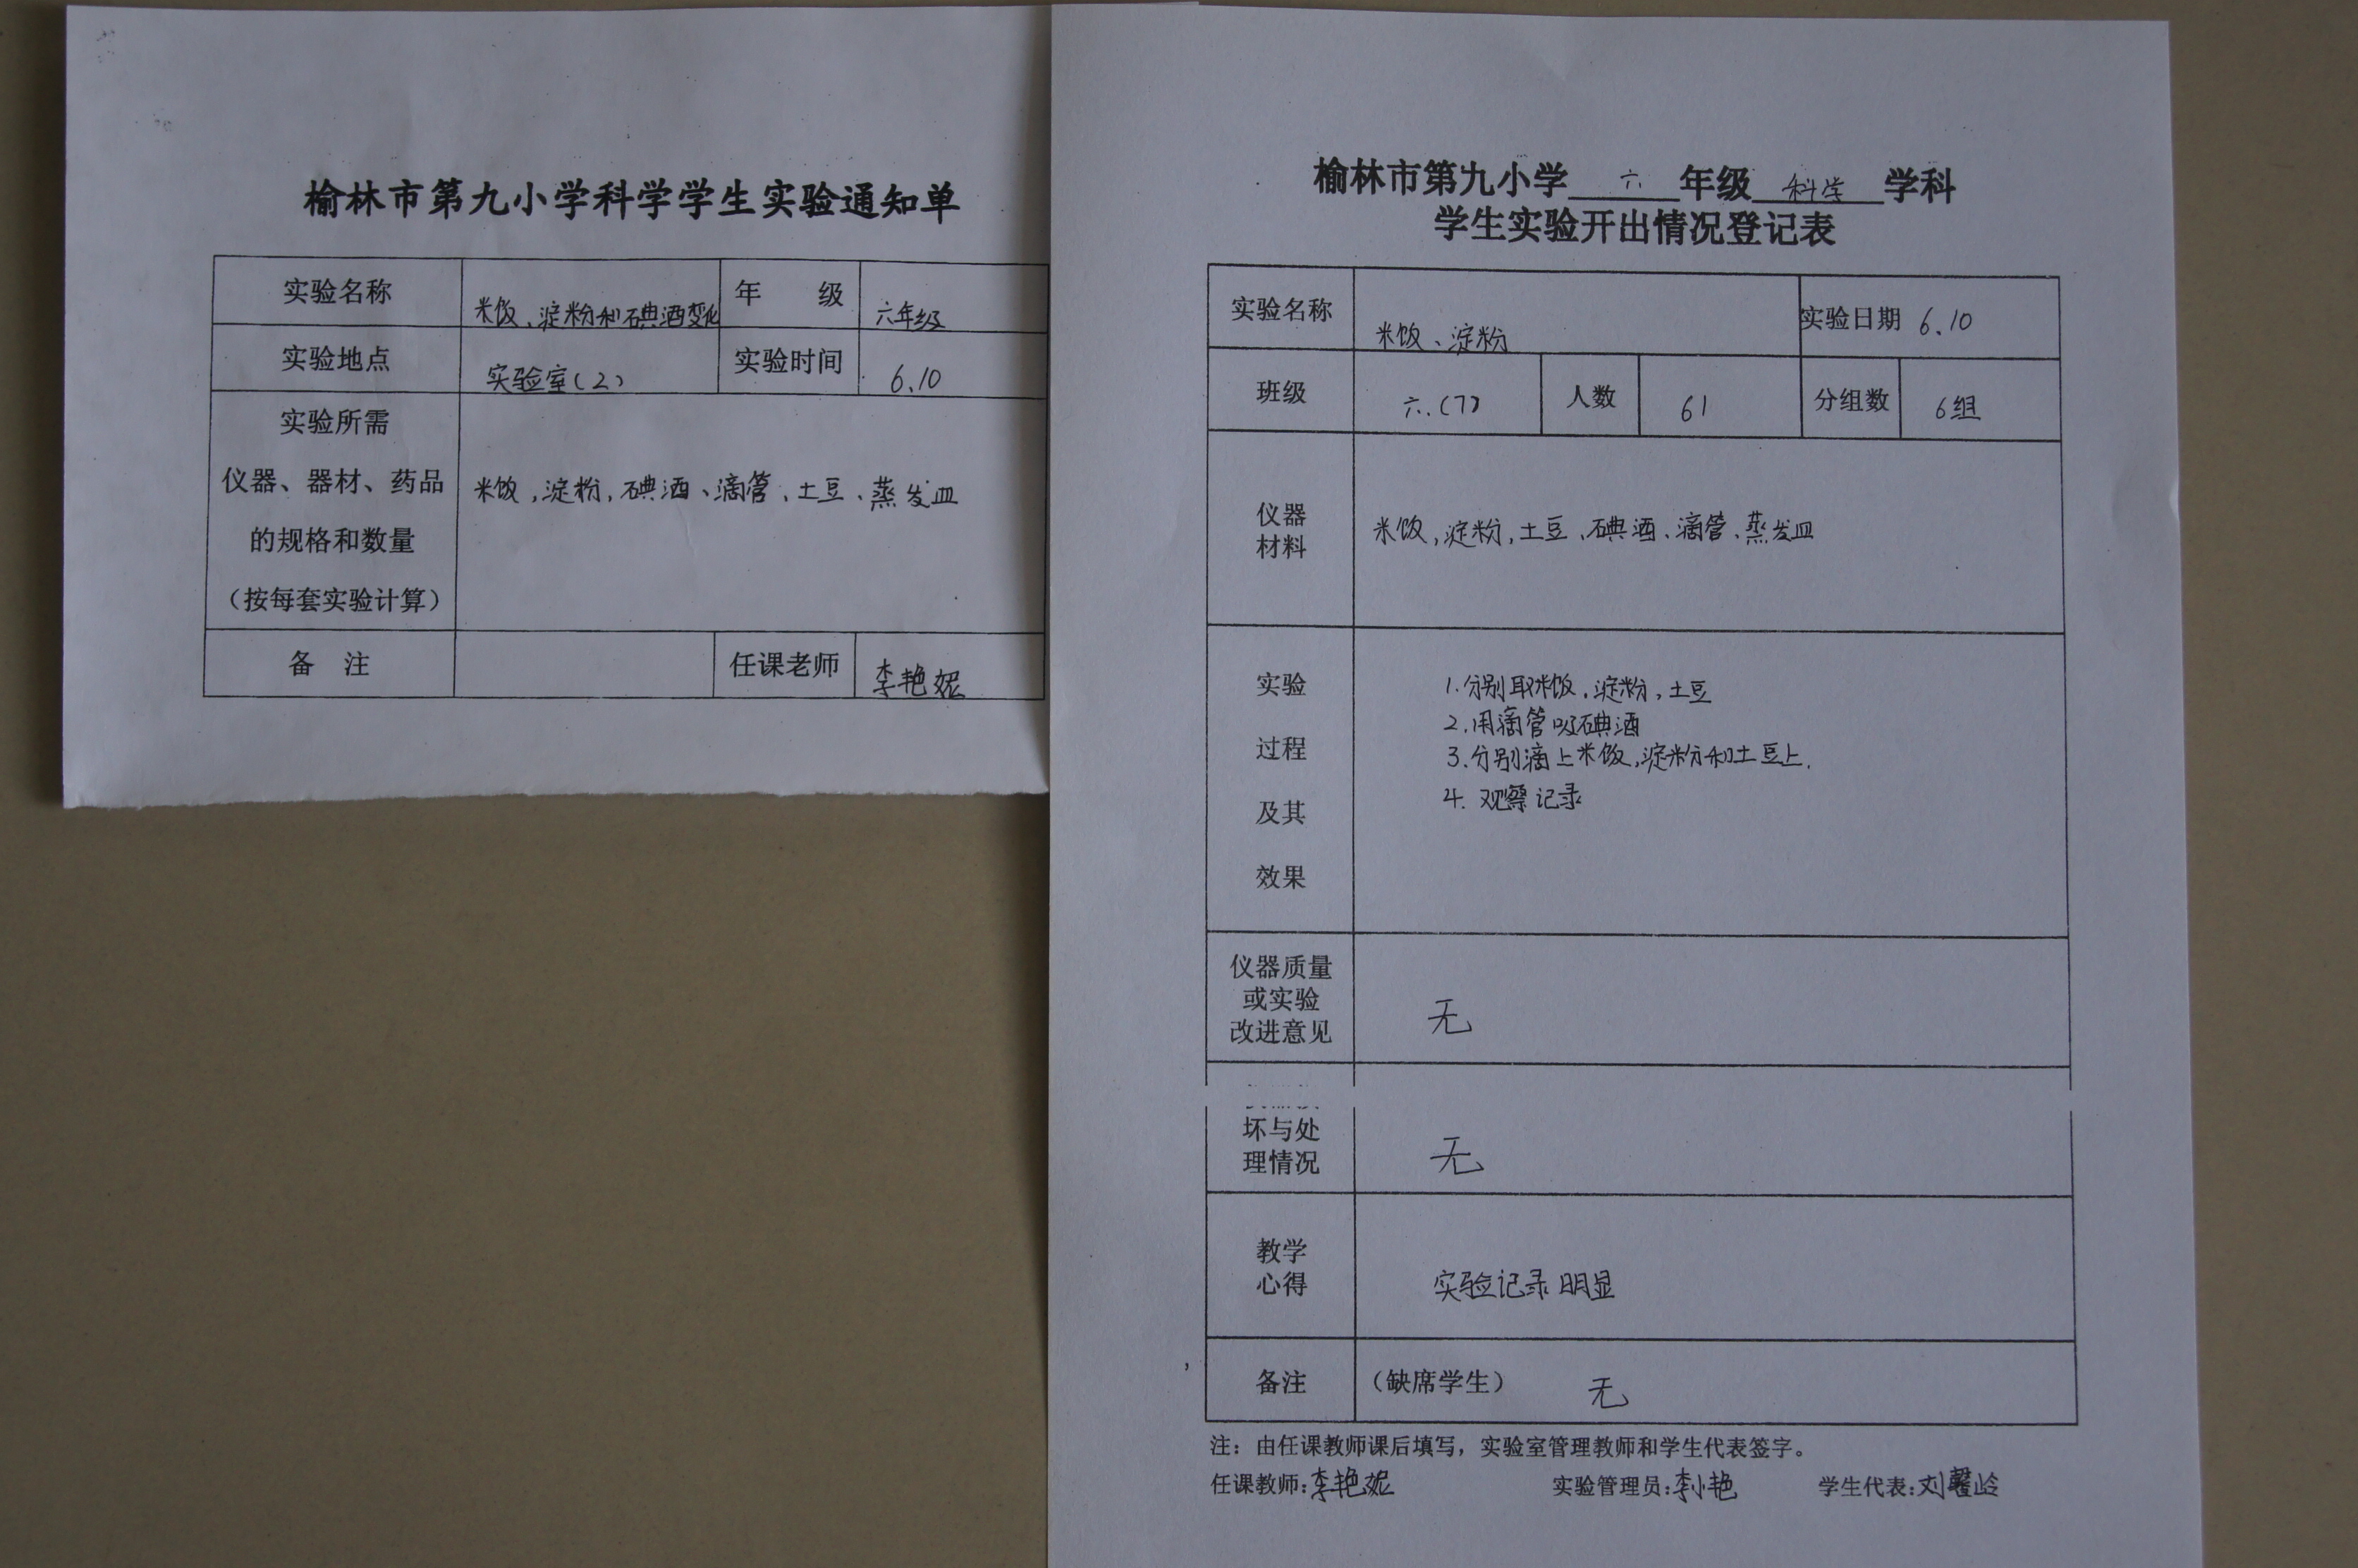 榆林市第九小学科学学生实验通知单
实验名称 米饭、淀粉和碘酒变化 年 级 六年级
实验地点 实验室(2) 实验时间 6.10
实验所需
仪器、器材、药品
的规格和数量
（按每套实验计算）
米饭,淀粉,碘酒、滴管、土豆、蒸发皿
备 注 任课老师 李艳妮
榆林市第九小学 六 年级 科学 学科
学生实验开出情况登记表
实验名称 米饭、淀粉 实验日期 6.10
班级 六.(7) 人数 61 分组数 6组
仪器
材料
米饭,淀粉,土豆、碘酒、滴管、蒸发皿
实验
过程
及其
效果
1.分别取米饭,淀粉,土豆
2.用滴管吸碘酒
3.分别滴上米饭,淀粉和土豆上.
4.观察记录
仪器质量
或实验
改进意见
无
坏与处
理情况
无
教学
心得
实验记录明显
备注 （缺席学生） 无
注：由任课教师课后填写，实验室管理教师和学生代表签字。
任课教师:李艳妮 实验管理员:李小艳 学生代表:刘馨岭